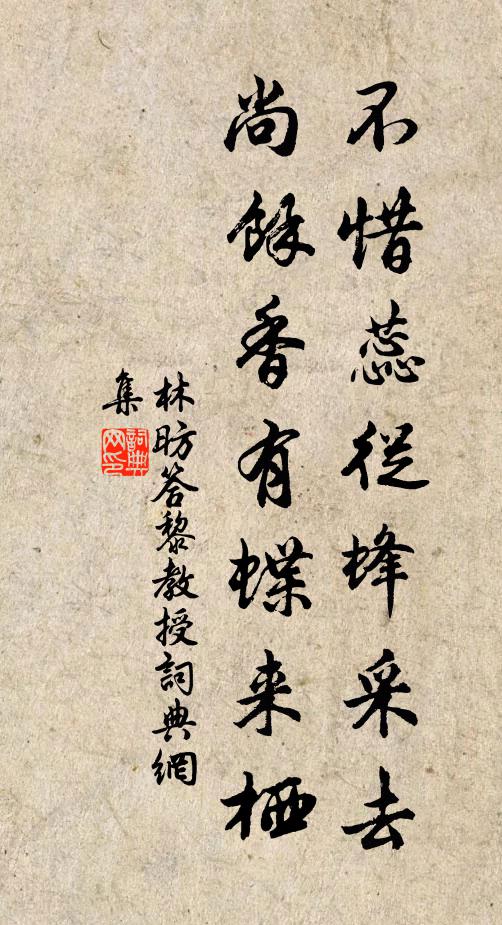 不惜蕊從蜂采去
尚餘香有蝶来栖
林昉答黎教授詞典網
集
詞典网印